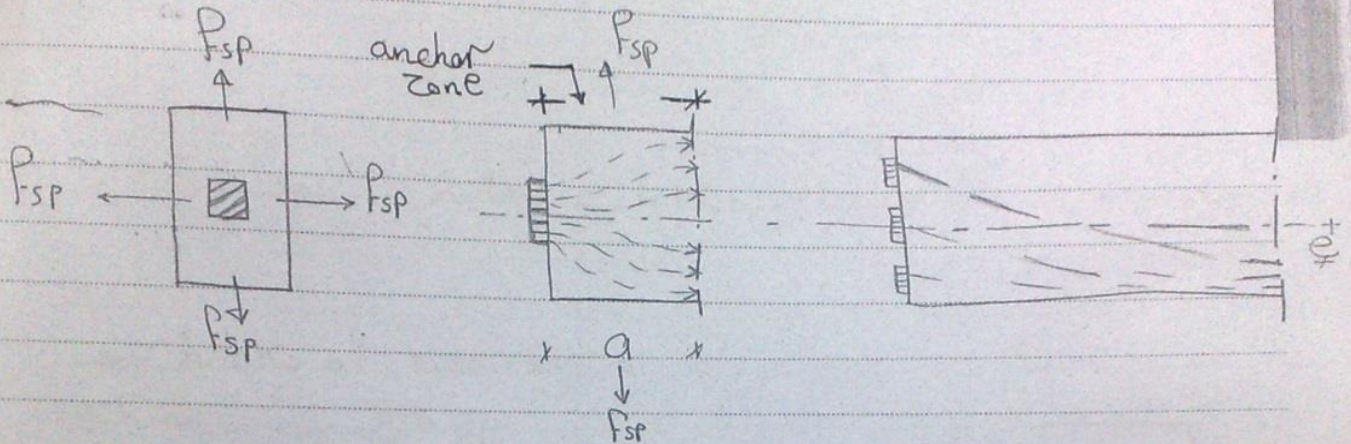 fsp
anchor
zone
fsp
fsp
fsp
fsp
a
fsp
e